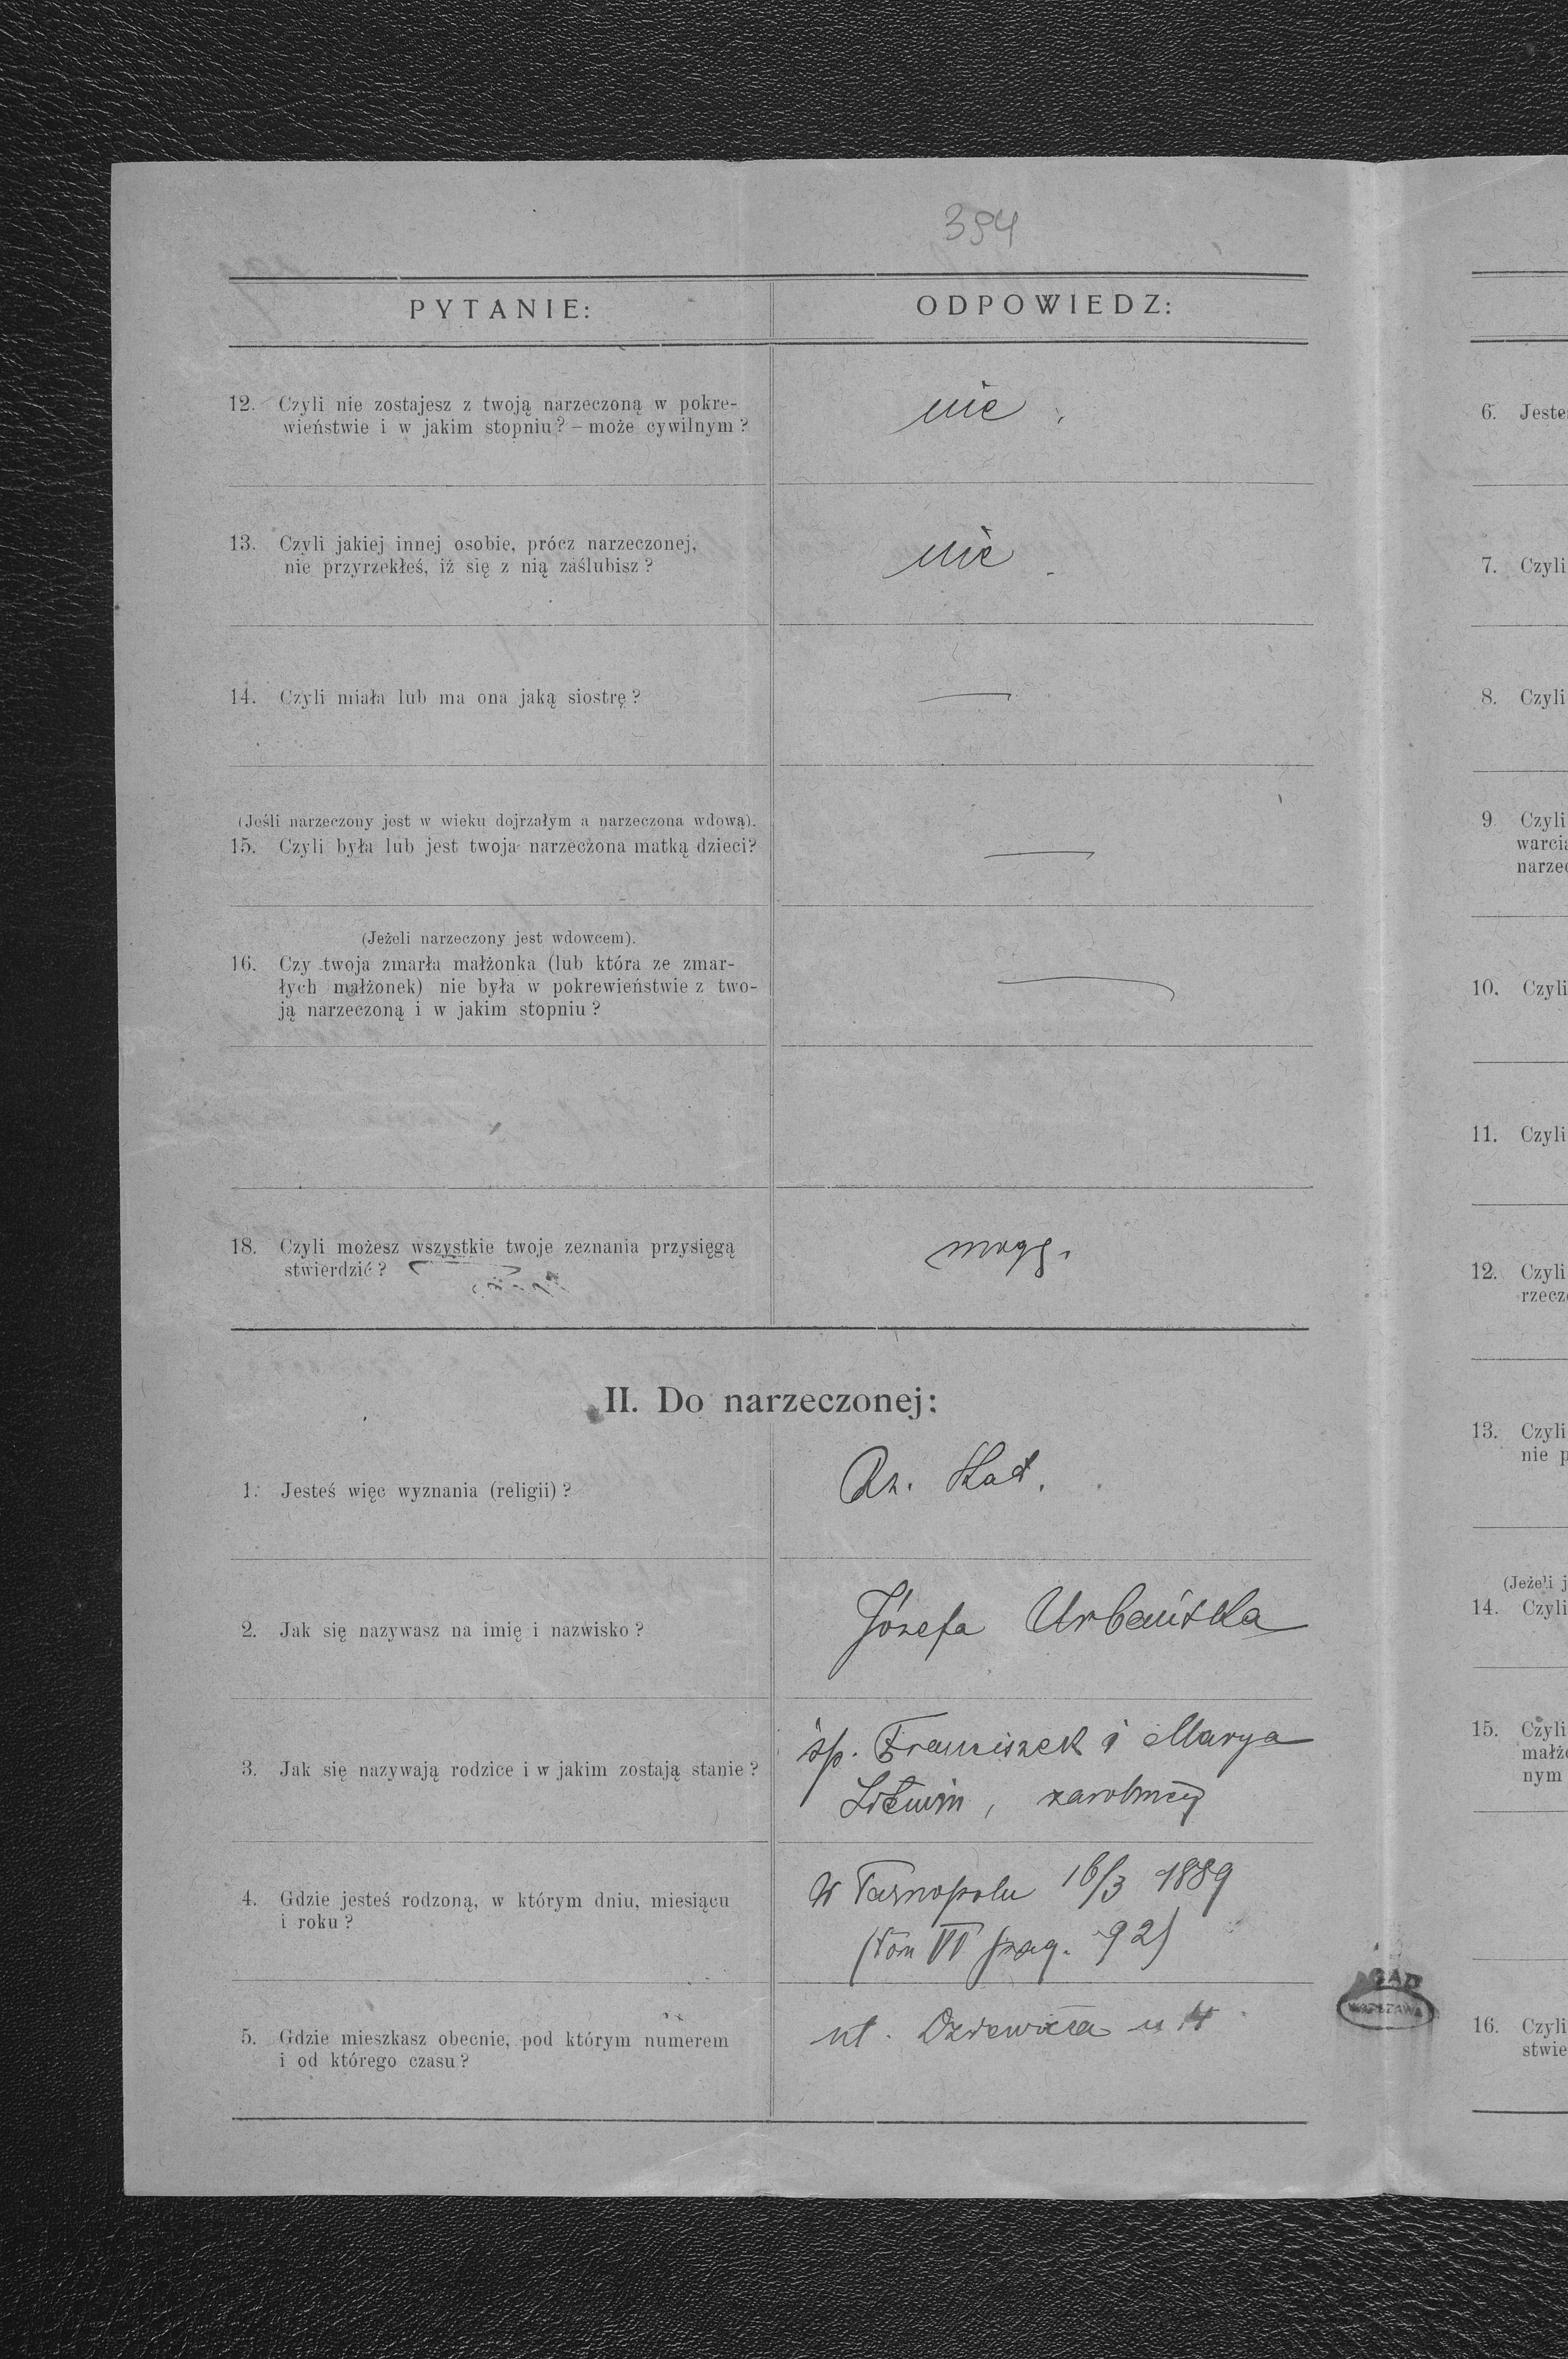 394
PYTANIE:
ODPOWIEDZ:
12. Czyli nie zostajesz z twoją narzeczoną w pokre-
wieństwie i w jakim stopniu? – może cywilnym?
nie.
13. Czyli jakiej innej osobie, prócz narzeczonej,
nie przyrzekłeś, iż się z nią zaślubisz?
nie
14. Czyli miała lub ma ona jaką siostrę?
—
(Jeśli narzeczony jest w wieku dojrzałym a narzeczona wdową).
15. Czyli była lub jest twoja narzeczona matką dzieci?
—
(Jeżeli narzeczony jest wdowcem).
16. Czy twoja zmarła małżonka (lub która ze zmar-
łych małżonek) nie była w pokrewieństwie z two-
ją narzeczoną i w jakim stopniu?
—
18. Czyli możesz wszystkie twoje zeznania przysięgą
stwierdzić?
mogę.
II. Do narzeczonej:
1. Jesteś więc wyznania (religii)?
Rz. Kat.
2. Jak się nazywasz na imię i nazwisko?
Józefa Urbańska
3. Jak się nazywają rodzice i w jakim zostają stanie?
śp. Franciszek i Marya
Litwin, zarobnicy
4. Gdzie jesteś rodzoną, w którym dniu, miesiącu
i roku?
W Tarnopolu 16/3 1889
(Tom VI pag. 92)
5. Gdzie mieszkasz obecnie, pod którym numerem
i od którego czasu?
ul.
AGAD
WARSZAWA
6. Jeste
7. Czyli
8. Czyli
9. Czyli
warcia
narzec
10. Czyli
11. Czyli
12. Czyli
rzecz
13. Czyli
nie p
(Jeżeli j
14. Czyli
15. Czyli
małż
nym
16. Czyli
stwie